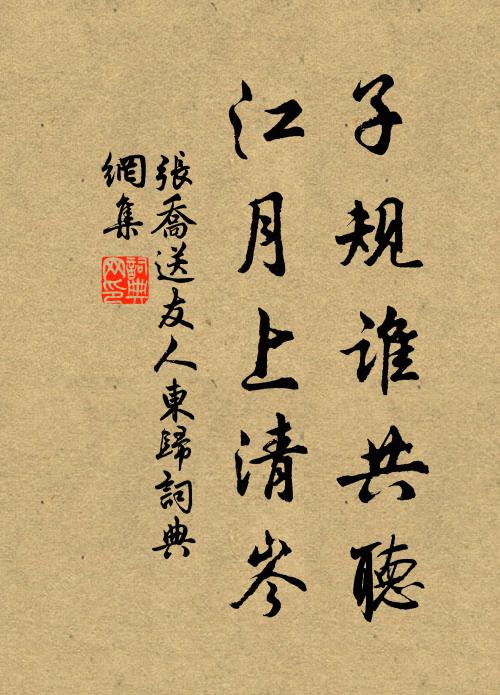 子規誰共聽
江月上清岑
張喬送友人東歸詞典
網集
詞典
网印